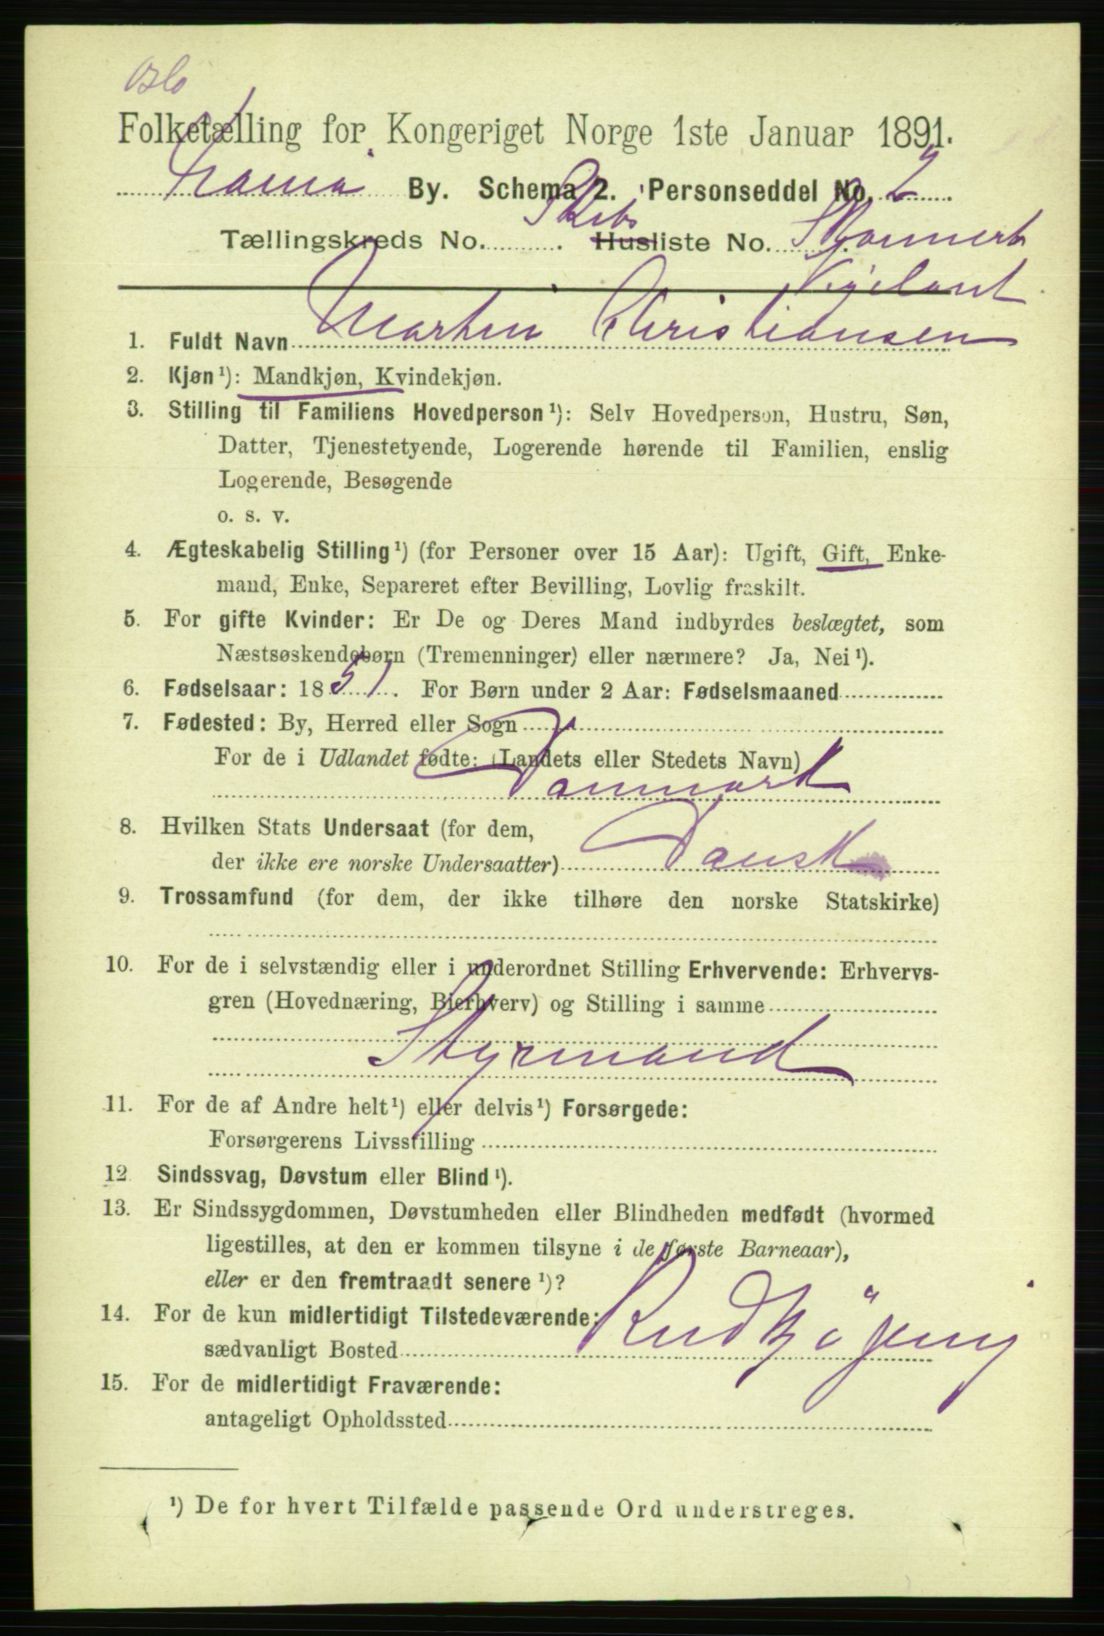 Oslo
Folketælling for Kongeriget Norge 1ste Januar 1891.
By. Schema 2. Personseddel No. 2
Tællingskreds No. . Skibs Husliste No.
Vigilant
1. Fuldt Navn Martin Christiansen
2. Kjøn¹): Mandkjøn, Kvindekjøn.
3. Stilling til Familiens Hovedperson¹): Selv Hovedperson, Hustru, Søn,
Datter, Tjenestetyende, Logerende hørende til Familien, enslig
Logerende, Besøgende
o. s. v.
4. Ægteskabelig Stilling¹) (for Personer over 15 Aar): Ugift, Gift, Enke-
mand, Enke, Separeret efter Bevilling, Lovlig fraskilt.
5. For gifte Kvinder: Er De og Deres Mand indbyrdes beslægtet, som
Næstsøskendebørn (Tremenninger) eller nærmere? Ja, Nei¹).
6. Fødselsaar: 1851. For Børn under 2 Aar: Fødselsmaaned
7. Fødested: By, Herred eller Sogn
For de i Udlandet fødte: (Landets eller Stedets Navn)
Danmark
8. Hvilken Stats Undersaat (for dem,
der ikke ere norske Undersaatter) Dansk
9. Trossamfund (for dem, der ikke tilhøre den norske Statskirke)
10. For de i selvstændig eller i underordnet Stilling Erhvervende: Erhvervs-
gren (Hovednæring, Bierhverv) og Stilling i samme
Styrmand
11. For de af Andre helt¹) eller delvis¹) Forsørgede:
Forsørgerens Livsstilling
12 Sindssvag, Døvstum eller Blind¹).
13. Er Sindssygdommen, Døvstumheden eller Blindheden medfødt (hvormed
ligestilles, at den er kommen tilsyne i de første Barneaar),
eller er den fremtraadt senere¹)?
14. For de kun midlertidigt Tilstedeværende:
sædvanligt Bosted Rudkjøjeng
15. For de midlertidigt Fraværende:
antageligt Opholdssted
¹) De for hvert Tilfælde passende Ord understreges.